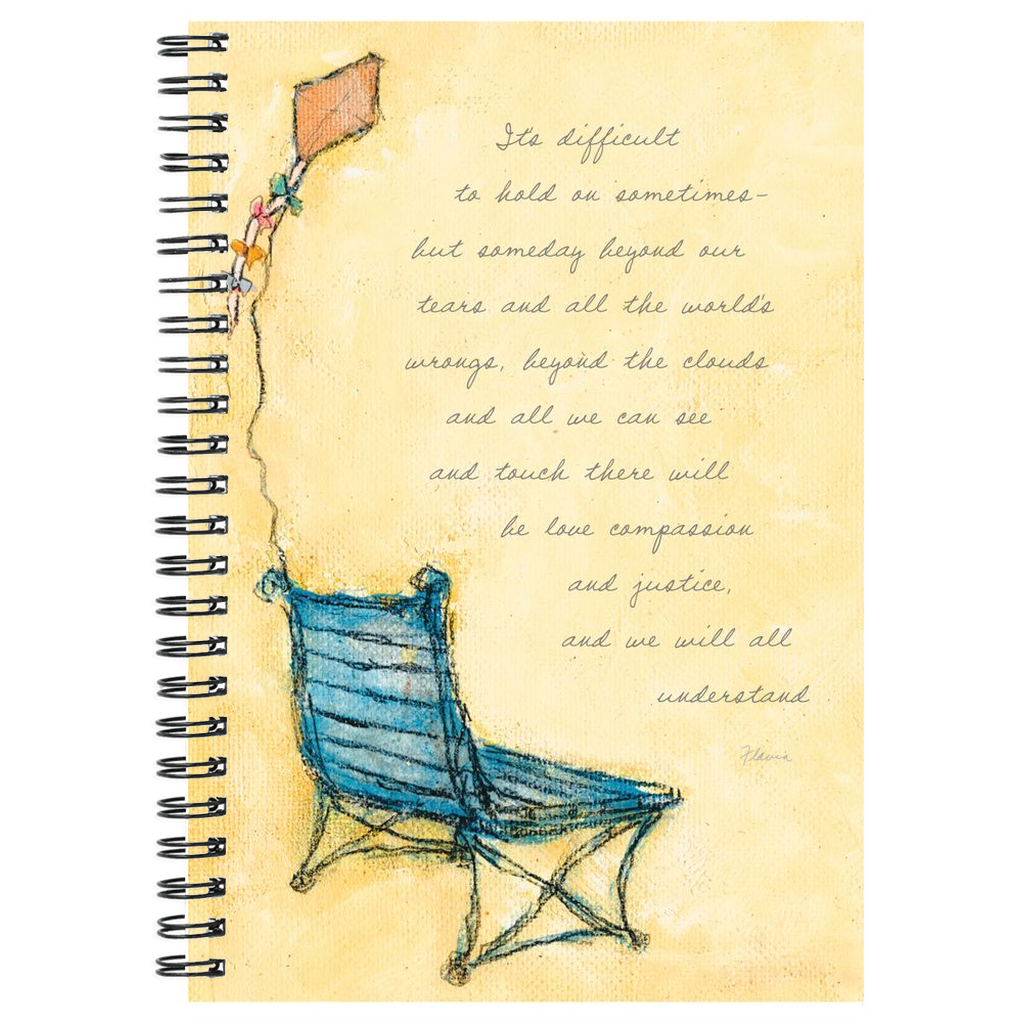 It's difficult
to hold on sometimes-
but someday beyond our
tears and all the world's
wrongs, beyond the clouds
and all we can see
and touch there will
be love compassion
and justice,
and we will all
understand
Flavia